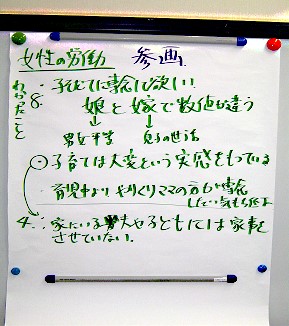 女性の労働 参画
わかったこと
8: 子育ては輪して欲しい
娘と嫁で数値が違う
↓ ↓
男女平等 息子の世話
・子育ては大変という実感をもっている
・育児中よりやりくりママの方が
したい気もち
4: 家にいる夫や子どもには家事を
させていない.